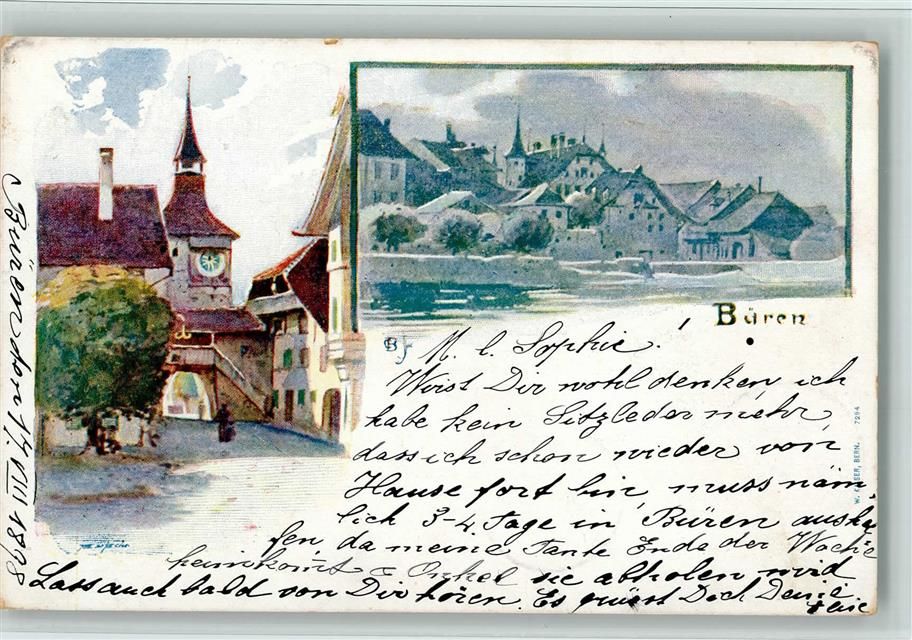 Büren
M. l. Sophie!
Wirst Dir wohl denken, ich
habe kein Sitzleder mehr,
dass ich schon wieder von
Hause fort bin, muss näm
lich 3-4 Tage in Büren aushel
fen, da meine Tante Ende der Woche
heimkomt & Onkel sie abholen wird
Lass auch bald von Dir hören. Es grüsst Dich Deine
Büren, d
17. VIII 1898
W. KAISER, BERN. 7294